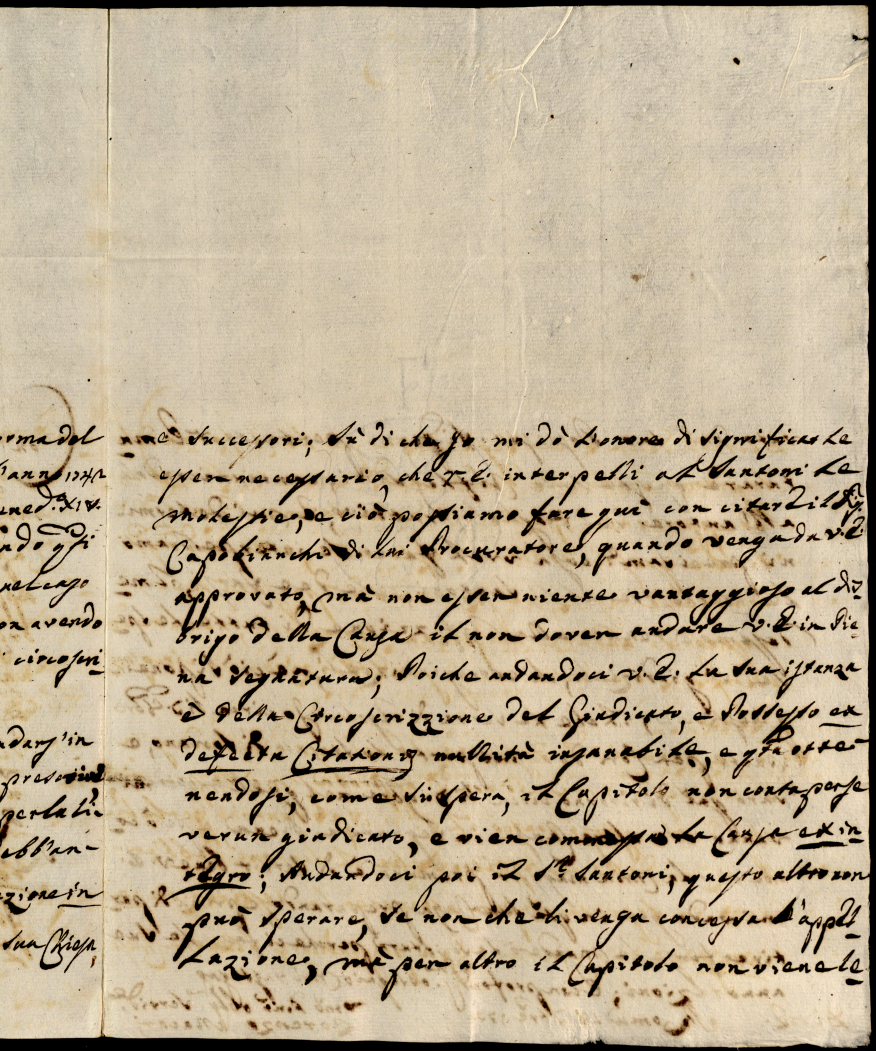 orma del
l'anno 1742
ened.º XIV.
ndo q.si
nel caso
on avendo
circoscri-
ndars' in
per la li-
ebban-
zione in
sua Chiesa,
nè Successori; Sù di che Jo mi dò l'onore di Significarle
essen necessario, che V. E. interpelli al Santoni le
molestie, e ciò possiamo fare quì con citar il Sig.
Capobianchi di lui Procuratore, quando venga da V. E.
approvato, mà non essen niente vantaggioso al dis-
brigo della Causa il non doven andare V. E. in Pie-
na Segnatura; Poiche andandoci V. E. la Sua istanza
è della Circoscrizzione del Giudicato, e Possesso ex
defectu Citationis nullità insanabile, e già otte-
nendosi, come si spera, il Capitolo non conta per se
verun giudicato, e vien commessa la Causa ex in-
tegro; Andandoci poi il S.r Santoni, questo altro non
può Sperare, Se non che li venga concessa l'appel-
lazione, mà pen altro il Capitolo non viene le-